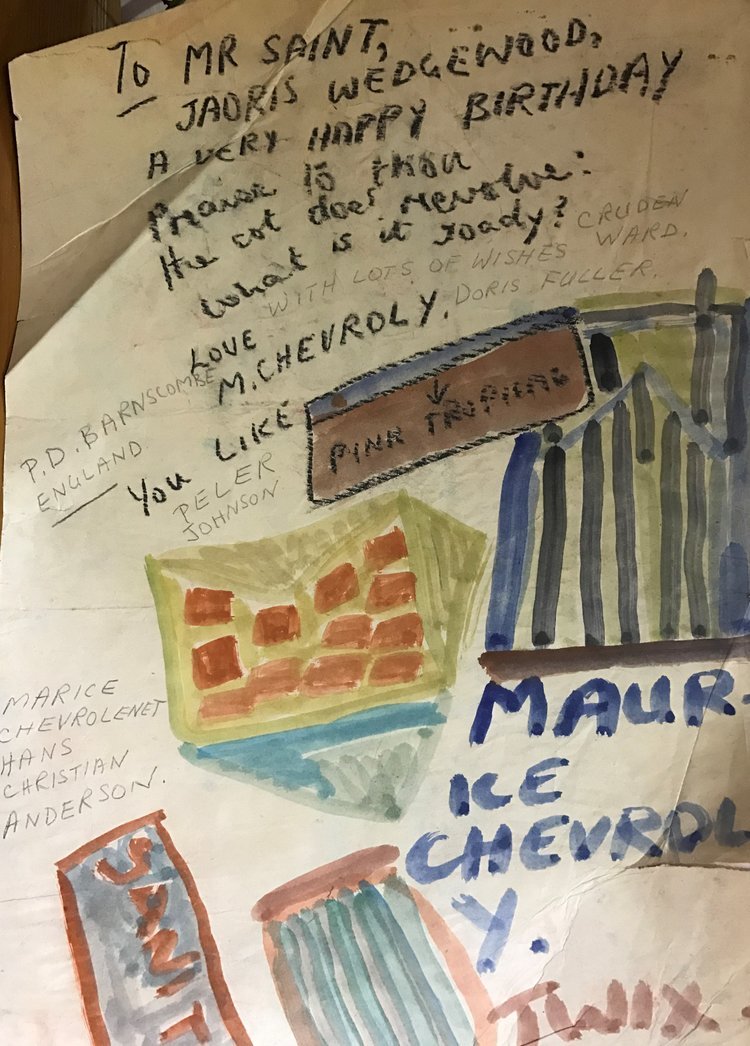 To MR SAINT,
JADRIS WEDGEWOOD,
A VERY HAPPY BIRTHDAY
to thou
the cot does revolve:
what is it ready?
CRUDEN
WARD.
WITH LOTS OF WISHES
DORIS FULLER.
LOVE
M. CHEVROLY.
P.D. BARNSCOMBE
ENGLAND
YOU LIKE
PINK
PELER
JOHNSON
MARICE
CHEVROLENET
HANS
CHRISTIAN
ANDERSON.
MAUR-
ICE
CHEVROL
Y.
SANIT
TWIX